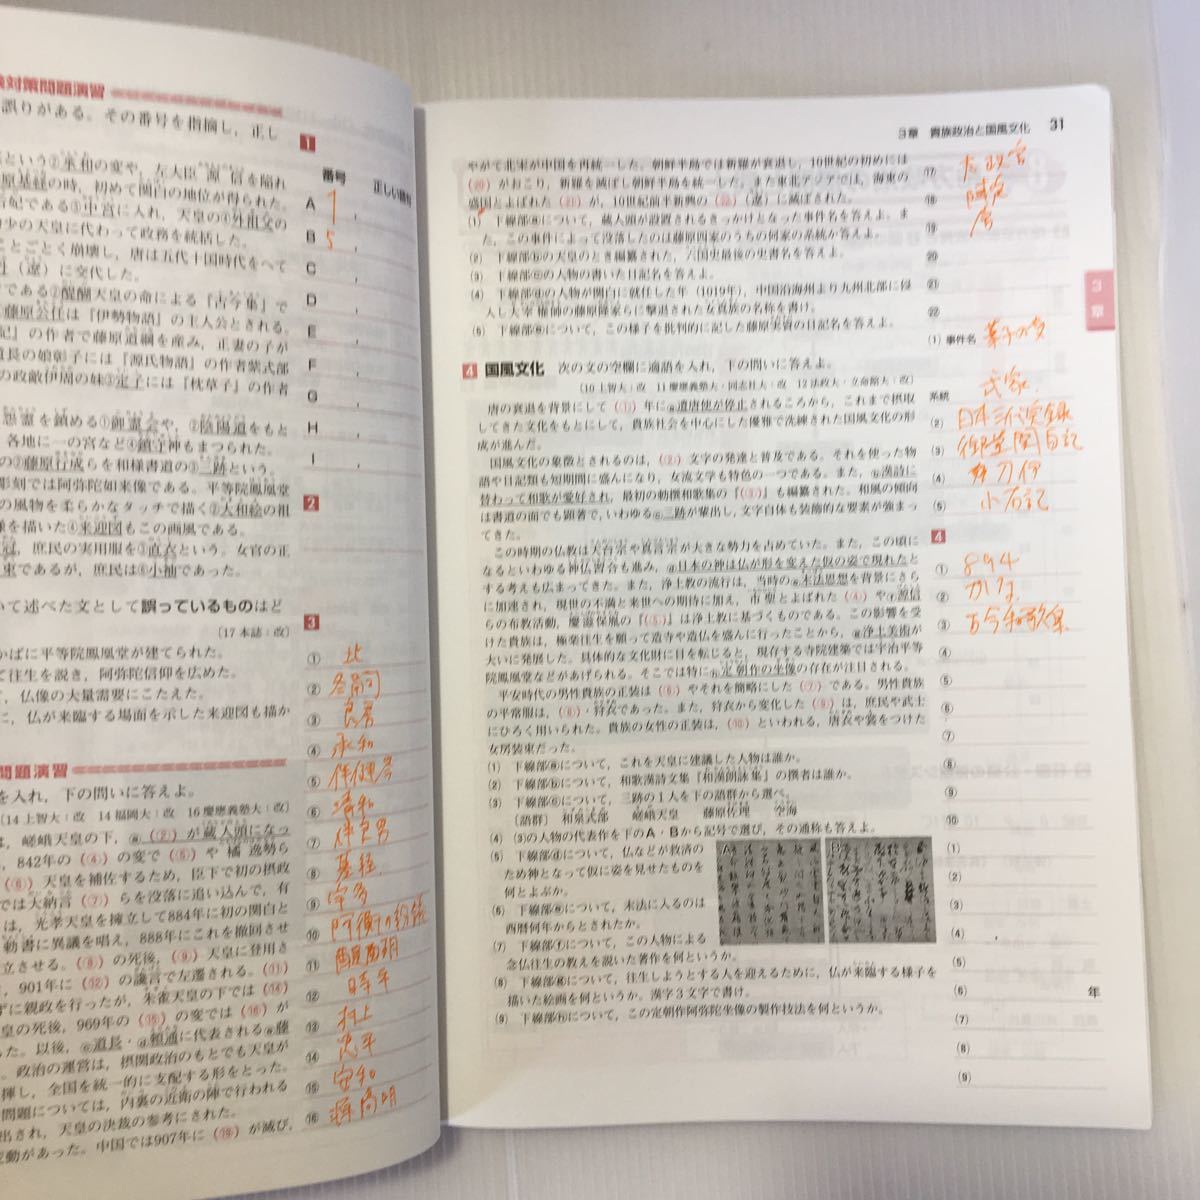 対策問題演習
誤りがある。その番号を指摘し，正し
という②承和の変や，左大臣源信を陥れ
原基経の時，初めて関白の地位が得られた
妃である③中宮に入れ，天皇の③外祖父の
少の天皇に代わって政務を統括した。
ことごとく崩壊し，唐は五代十国時代をへて
（遼）に交代した。
である②醍醐天皇の命による『古今集』で
藤原公任は『伊勢物語』の主人公とされる。
記』の作者で藤原道綱を産み，正妻の子が
道長の娘彰子には『源氏物語』の作者紫式部
の政敵伊周の妹③定子には『枕草子』の作者
怨霊を鎮める①御霊会や，②陰陽道をもと
各地に一の宮など④鎮守神もまつられた。
の②藤原行成らを和様書道の③三跡という。
彫刻では阿弥陀如来像である。平等院鳳凰堂
の風物を柔らかなタッチで描く②大和絵の祖
様を描いた④来迎図もこの画風である。
冠，庶民の実用服を③直衣という。女官の正
束であるが，庶民は⑥小袖であった。
いて述べた文として誤っているものはど
〔17本誌：改〕
かばに平等院鳳凰堂が建てられた。
て往生を説き，阿弥陀信仰を広めた。
て，仏像の大量需要にこたえた。
に，仏が来臨する場面を示した来迎図も描か
問題演習
を入れ，下の問いに答えよ。
〔14上智大：改 14福岡大：改 16慶應義塾大：改〕
は，嵯峨天皇の下，ⓐ（②）が蔵人頭になっ
842年の（④）の変で（⑤）や橘逸勢ら
（⑥）天皇を補佐するため，臣下で初の摂政
では大納言（⑦）らを没落に追い込んで，有
は，光孝天皇を擁立して884年に初の関白と
勅書に異議を唱え，888年にこれを撤回させ
立させる。（⑧）の死後，（⑨）天皇に登用さ
901年に（⑫）の讒言で左遷される。（⑪）
ずに親政を行ったが，朱雀天皇の下では（⑭）
皇の死後，969年の（⑮）の変では（⑯）が
った。以後，ⓒ道長・ⓓ頼通に代表されるⓔ藤
政治の運営は，摂関政治のもとでも天皇が
揮し，全国を統一的に支配する形をとった。
問題については，内裏の近衛の陣で行われる
出され，天皇の決裁の参考にされた。
変動があった。中国では907年に（⑲）が滅び，
1
番号 正しい語句
A 1 ，
B 5 ，
C ，
D ，
E ，
F ，
G ，
H ，
I ，
2
3
① 北
② 冬嗣
③ 良房
④ 承和
⑤ 伴健岑
⑥ 清和
⑦ 伴善男
⑧ 基経
⑨ 宇多
⑩ 阿衡の紛議
⑪ 醍醐
⑫ 時平
⑬ 村上
⑭ 忠平
⑮ 安和
⑯ 源高明
3章 貴族政治と国風文化 31
やがて北宋が中国を再統一した。朝鮮半島では新羅が衰退し，10世紀の初めには
（⑳）がおこり，新羅を滅ぼし朝鮮半島を統一した。また東北アジアでは，海東の
盛国とよばれた（㉑）が，10世紀前半新興の（㉒）（遼）に滅ぼされた。
(1) 下線部ⓐについて，蔵人頭が設置されるきっかけとなった事件名を答えよ。ま
た，この事件によって没落したのは藤原四家のうちの何家の系統か答えよ。
(2) 下線部ⓑの天皇のとき編纂された，六国史最後の史書名を答えよ。
(3) 下線部ⓒの人物の書いた日記名を答えよ。
(4) 下線部ⓓの人物が関白に就任した年（1019年），中国沿海州より九州北部に侵
入し大宰権帥の藤原隆家らに撃退された女真族の名称を書け。
(5) 下線部ⓔについて，この様子を批判的に記した藤原実資の日記名を答えよ。
4 国風文化 次の文の空欄に適語を入れ，下の問いに答えよ。
〔10上智大：改 11慶應義塾大・同志社大：改 12法政大・立命館大：改〕
唐の衰退を背景にして（①）年にⓐ遣唐使が停止されるころから，これまで摂取
してきた文化をもとにして，貴族社会を中心にした優雅で洗練された国風文化の形
成が進んだ。
国風文化の象徴とされるのは，（②）文字の発達と普及である。それを使った物
語や日記類も短期間に盛んになり，女流文学も特色の一つである。また，ⓑ漢詩に
替わって和歌が愛好され，最初の勅撰和歌集の『（③）』も編纂された。和風の傾向
は書道の面でも顕著で，いわゆるⓒ三跡が輩出し，文字自体も装飾的な要素が強まっ
てきた。
この時期の仏教は天台宗や真言宗が大きな勢力を占めていた。また，この頃に
なるといわゆる神仏習合も進み，ⓓ日本の神は仏が形を変えた仮の姿で現れたと
する考えも広まってきた。また，浄土教の流行は，当時のⓔ末法思想を背景にさら
に加速され，現世の不満と来世への期待に加え，市聖とよばれた（④）やⓕ源信
らの布教活動，慶滋保胤の『（⑤）』は浄土教に基づくものである。この影響を受
けた貴族は，極楽往生を願って造寺や造仏を盛んに行ったことから，ⓖ浄土美術が
大いに発展した。具体的な文化財に目を転じると，現存する寺院建築では宇治平等
院鳳凰堂などがあげられる。そこでは特にⓗ定朝作の坐像の存在が注目される。
平安時代の男性貴族の正装は（⑥）やそれを簡略にした（⑦）である。男性貴族
の平常服は，（⑧）・狩衣であった。また，狩衣から変化した（⑨）は，庶民や武士
にひろく用いられた。貴族の女性の正装は，（⑩）といわれる，唐衣や裳をつけた
女房装束だった。
(1) 下線部ⓐについて，これを天皇に建議した人物は誰か。
(2) 下線部ⓑについて，和歌漢詩文集『和漢朗詠集』の撰者は誰か。
(3) 下線部ⓒについて，三跡の1人を下の語群から選べ。
〔語群〕 和泉式部 嵯峨天皇 藤原佐理 空海
(4) (3)の人物の代表作を下のA・Bから記号で選び，その通称も答えよ。
(5) 下線部ⓓについて，仏などが救済の
ため神となって仮に姿を見せたものを
何とよぶか。
(6) 下線部ⓔについて，末法に入るのは
西暦何年からとされたか。
(7) 下線部ⓕについて，この人物による
念仏往生の教えを説いた著作を何というか。
(8) 下線部ⓖについて，往生しようとする人を迎えるために，仏が来臨する様子を
描いた絵画を何というか。漢字3文字で書け。
(9) 下線部ⓗについて，この定朝作阿弥陀坐像の製作技法を何というか。
A
B
⑰ 太政官
⑱ 陣定
⑲ 唐
⑳
㉑
㉒
(1) 事件名 薬子の変
系統 式家
(2) 日本三代実録
(3) 御堂関白記
(4) 刀伊
(5) 小右記
4
① 894
② かな
③ 古今和歌集
④
⑤
⑥
⑦
⑧
⑨
⑩
(1)
(2)
(3)
(4)
(5)
(6) 年
(7)
(8)
(9)
3章